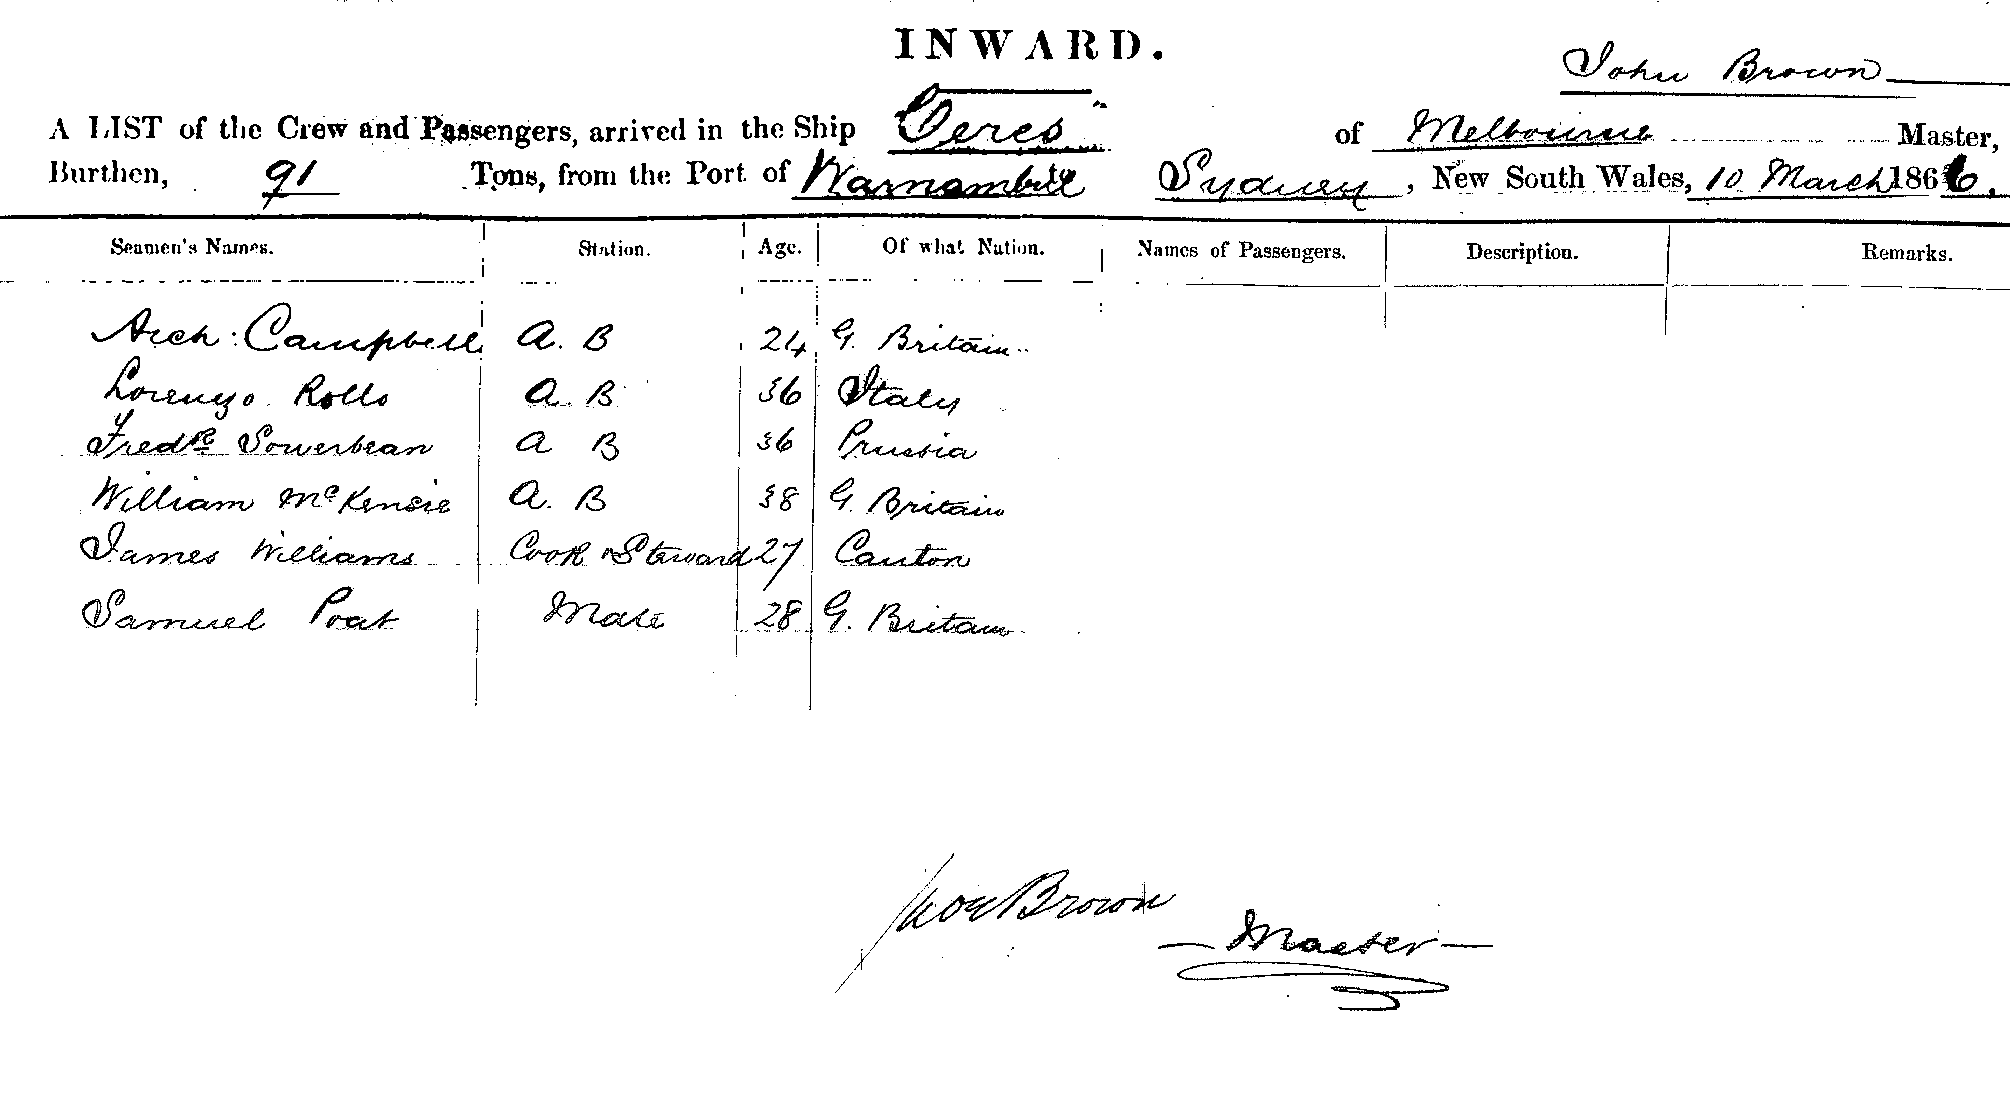 INWARD.
John Brown
A LIST of the Crew and Passengers, arrived in the Ship "Ceres" of Melbourne Master,
Burthen, 91 Tons, from the Port of Warnambill Sydney, New South Wales, 10 March 1866.
Seamen's Names. Station. Age. Of what Nation. Names of Passengers. Description. Remarks.
Arch: Campbell A. B 24 G. Britain
Lorenzo Rolls A. B 36 Italy
Fredk Sowerbean A B 36 Prussia
William McKensie A. B 38 G. Britain
James Williams Cook & Steward 27 Canton
Samuel Poat Mate 28 G. Britain
Brown
Master